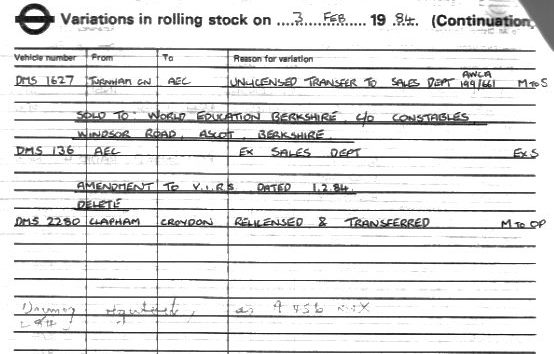 Variations in rolling stock on ....3....FEB........19 84. (Continuation
Vehicle number From To Reason for variation
DMS 1627 TURNHAM GN AEC UNLICENSED TRANSFER TO SALES DEPT AWLA 199/661 M TO S
SOLD TO: WORLD EDUCATION BERKSHIRE, C/O CONSTABLES
WINDSOR ROAD, ASCOT, BERKSHIRE
DMS 136 AEC EX SALES DEPT EX.S
AMENDMENT TO V.I.R.S DATED 1.2.84.
DELETE
DMS 2280 CLAPHAM CROYDON RELICENSED & TRANSFERRED M TO OP
as